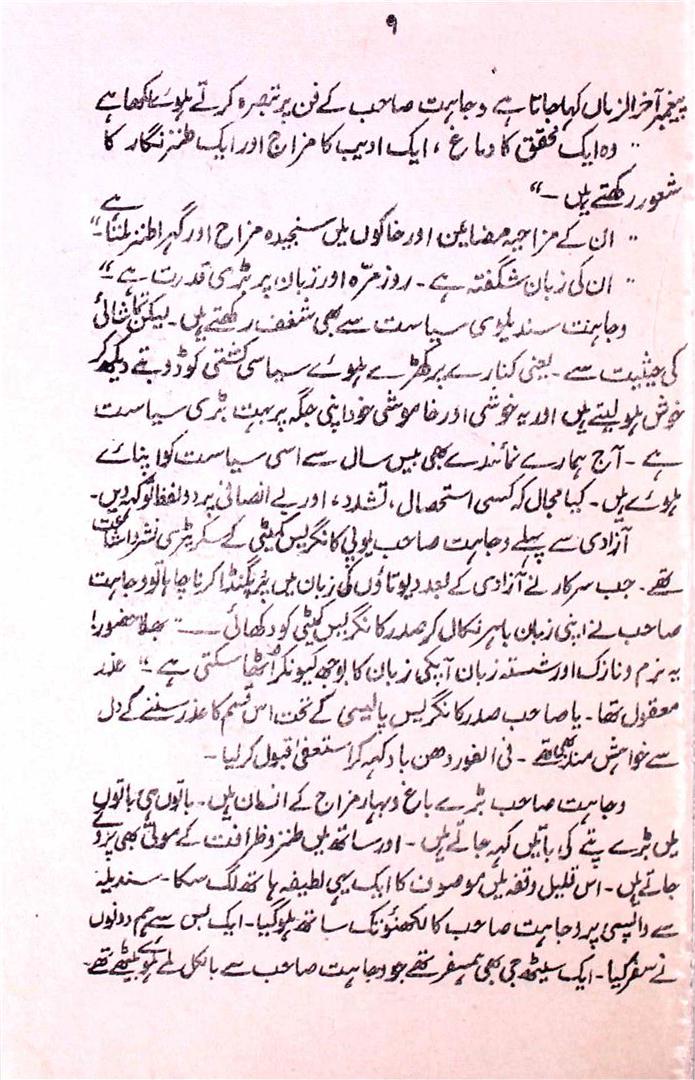 ۹
پیغمبر آخر الزماں کہا جاتا ہے وجاہت صاحب کے فن پر تبصرہ کرتے ہوئے لکھا ہے
" وہ ایک محقق کا دماغ ، ایک ادیب کا مزاج اور ایک طنز نگار کا
شعور رکھتے ہیں ۔"
" ان کے مزاحیہ مضامین اور خاکوں میں سنجیدہ مزاح اور گہرا طنز ملتا ہے ۔"
" ان کی زبان شگفتہ ہے ۔ روز مرّہ اور زبان پر بڑی قدرت ہے ۔"
وجاہت سندیلوی سیاست سے بھی شغف رکھتے ہیں ۔ لیکن تماشائی
کی حیثیت سے ۔ یعنی کنارے پر کھڑے ہوئے سیاسی کشتی کو ڈوبتے دیکھ کر
خوش ہو لیتے ہیں اور یہ خوشی اور خاموشی خود اپنی جگہ پر بہت بڑی سیاست
ہے ۔ آج ہمارے نمائندے بھی بیس سال سے اسی سیاست کو اپنائے
ہوئے ہیں ۔ کیا مجال کہ کسی استحصال ، تشدد ، اور بے انصافی پر دو لفظ تو کہہ دیں ۔
آزادی سے پہلے وجاہت صاحب یوپی کانگریس کمیٹی کے سکریٹری نشر و اشاعت
تھے ۔ جب سرکار نے آزادی کے بعد دیوتاؤں کی زبان میں پروپیگنڈا کرنا چاہا تو وجاہت
صاحب نے اپنی زبان باہر نکال کر صدر کانگریس کمیٹی کو دکھائی ــــ " بھلا حضور !
یہ نرم و نازک اور شستہ زبان آپکی زبان کا بوجھ کیونکر اُٹھا سکتی ہے " عذر
معقول تھا ۔ یا صاحب صدر کانگریس پالیسی کے تحت اس قسم کا عذر سننے کے دل
سے خواہش مند بھی تھے ۔ فی الفور دھن باد کہہ کر استعفیٰ قبول کر لیا ۔
وجاہت صاحب بڑے باغ و بہار مزاج کے انسان ہیں ۔ باتوں ہی باتوں
میں بڑے پتے کی باتیں کہہ جاتے ہیں ۔ اور ساتھ میں طنز و ظرافت کے موتی بھی پروتے
جاتے ہیں ۔ اس قلیل وقفہ میں موصوف کا ایک یہی لطیفہ ہاتھ لگ سکا ۔ سندیلہ
سے واپسی پر وجاہت صاحب کا لکھنؤ تک ساتھ ہو گیا ۔ ایک بس سے ہم دونوں
نے سفر کیا ۔ ایک سیٹھ جی بھی ہمسفر تھے جو وجاہت صاحب سے بالکل ملے ہوئے بیٹھے تھے ۔